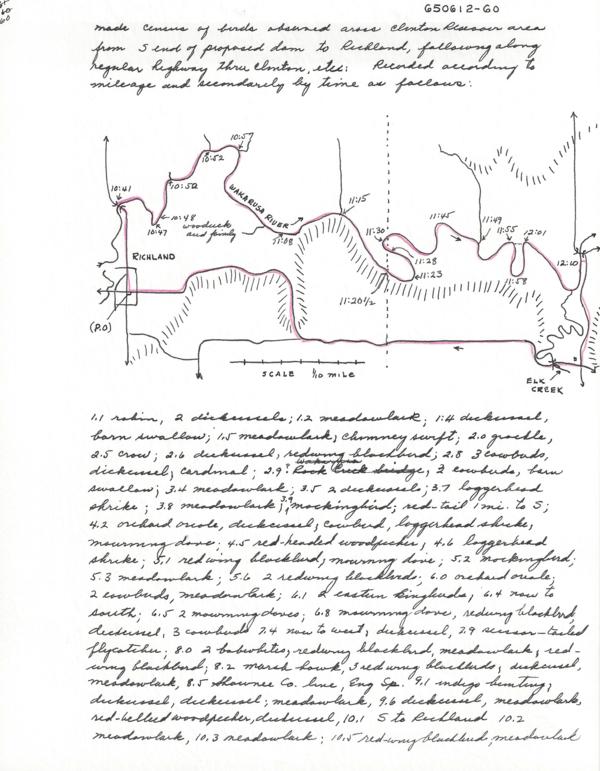 650612-60
made census of birds observed across Clinton Reservoir area
from S end of proposed dam to Richland, following along
regular Highway thru Clinton, etc: Recorded according to
mileage and secondarily by time as follows:
10:57
10:52
10:50
10:41
10:48
10:47
woodduck
and family
WAKARUSA
RIVER
11:08
11:15
11:30
11:28
11:23
11:20 1/2
11:45
11:49
11:55
12:01
11:58
12:10
RICHLAND
(P.O)
SCALE 1/10 MILE
ELK
CREEK
1.1 robin, 2 dickcissels; 1.2 meadowlark; 1.4 dickcissel,
barn swallow; 1.5 meadowlark, chimney swift; 2.0 grackle,
2.5 crow; 2.6 dickcissel, redwing blackbird; 2.8 3 cowbirds,
Wakarusa
dickcissel, cardinal; 2.9 Rock Creek bridge, 2 cowbirds, barn
swallow; 3.4 meadowlark; 3.5 2 dickcissels; 3.7 loggerhead
shrike; 3.8 meadowlark; 3.9 mockingbird; red-tail 1 mi. to S;
4.2 orchard oriole, dickcissel, cowbird, loggerhead shrike,
mourning dove; 4.5 red-headed woodpecker, 4.6 loggerhead
shrike; 5.1 redwing blackbird, mourning dove; 5.2 mockingbird;
5.3 meadowlark; 5.6 2 redwing blackbirds; 6.0 orchard oriole;
2 cowbirds, meadowlark; 6.1 2 eastern kingbirds; 6.4 now to
south; 6.5 2 mourning doves; 6.8 mourning dove, redwing blackbird,
dickcissel, 3 cowbirds 7.4 now to west, dickcissel, 7.9 scissor-tailed
flycatcher; 8.0 2 bobwhites, redwing blackbird, meadowlark; red-
wing blackbird; 8.2 marsh hawk, 3 redwing blackbirds, dickcissel,
meadowlark, 8.5 Shawnee Co. line, Eng Sp. 9.1 indigo bunting;
dickcissel, dickcissel; meadowlark, 9.6 dickcissel, meadowlark,
red-bellied woodpecker, dickcissel, 10.1 S to Richland 10.2
meadowlark, 10.3 meadowlark; 10.5 red-wing blackbird, meadowlark